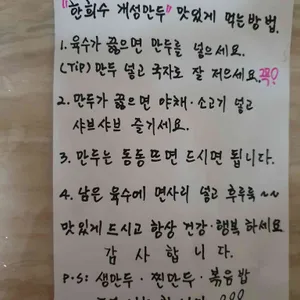 "한희수 개성만두" 맛있게 먹는방법.
1. 육수가 끓으면 만두를 넣으세요.
(Tip) 만두 넣고 국자로 잘 저으세요. 꼭!
2. 만두가 끓으면 야채·소고기 넣고
샤브샤브 즐기세요.
3. 만두는 동동뜨면 드시면 됩니다.
4. 남은 육수에 면사리 넣고 후루룩~~
맛있게 드시고 항상 건강·행복하세요
감사합니다.
P·S: 생만두·찐만두·볶음밥